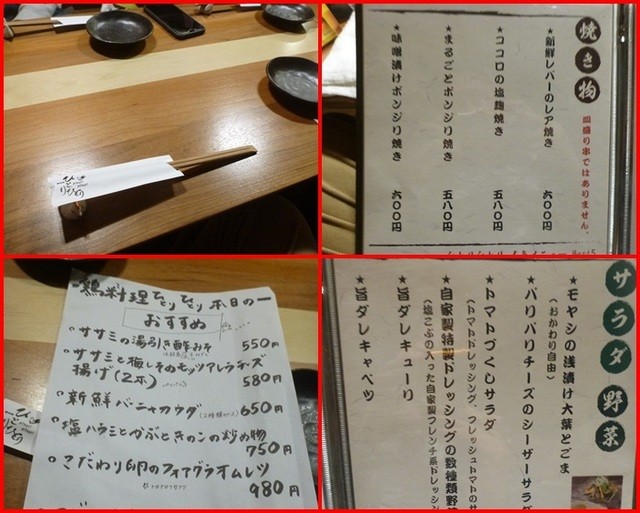 ひとり
びとり
焼き物
皿盛り串ではありません。
★新鮮レバーのレア焼き 六〇〇円
★ココロの塩麹焼き 五八〇円
★まるごとボンジリ焼き 五八〇円
★味噌漬けボンジリ焼き 六〇〇円
鶏料理ひとりひとり 本日の
おすすめ
・ササミの湯引き酢みそ 550円
・ササミと梅しそのモッツァレラチーズ
揚げ(2本) 580円
・新鮮バーニャカウダ 650円
・塩ハラミとかぶときのこの炒め物
750円
・こだわり卵のフォアグラオムレツ
980円
サラダ 野菜
★モヤシの浅漬け大葉とごま
(おかわり自由)
★パリパリチーズのシーザーサラダ
★トマトづくしサラダ
(トマトドレッシング、フレッシュトマトのサ
★自家製特製ドレッシングの数種類野
(塩こぶの入った自家製フレンチ系ドレッシン
★旨ダレキューリ
★旨ダレキャベツ